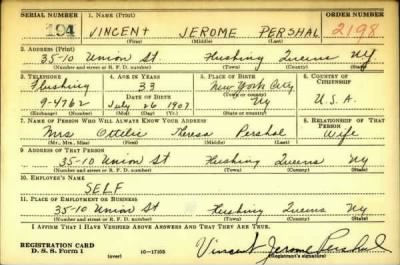 SERIAL NUMBER 1. NAME (Print) ORDER NUMBER
194 VINCENT JEROME PERSHAL 2198
(First) (Middle) (Last)
2. ADDRESS (Print)
35-10 Union St. Flushing Queens NY
(Number and street or R. F. D. number) (Town) (County) (State)
3. TELEPHONE 4. AGE IN YEARS 5. PLACE OF BIRTH 6. COUNTRY OF CITIZENSHIP
Flushing 33 New York City
(Town or county)
9-4762 July 26 1907 NY U.S.A.
(Exchange) (Number) (Mo.) (Day) (Yr.) (State or country)
7. NAME OF PERSON WHO WILL ALWAYS KNOW YOUR ADDRESS 8. RELATIONSHIP OF THAT PERSON
Mrs Ottelie Theresa Pershal Wife
(Mr., Mrs., Miss) (First) (Middle) (Last)
9. ADDRESS OF THAT PERSON
35-10 Union St Flushing Queens NY
(Number and street or R. F. D. number) (Town) (County) (State)
10. EMPLOYER'S NAME
SELF
11. PLACE OF EMPLOYMENT OR BUSINESS
35-10 Union St Flushing Queens NY
(Number and street or R. F. D. number) (Town) (County) (State)
I AFFIRM THAT I HAVE VERIFIED ABOVE ANSWERS AND THAT THEY ARE TRUE.
REGISTRATION CARD
D. S. S. Form 1 (over) 16-17105 Vincent Jerome Pershal
(Registrant's signature)